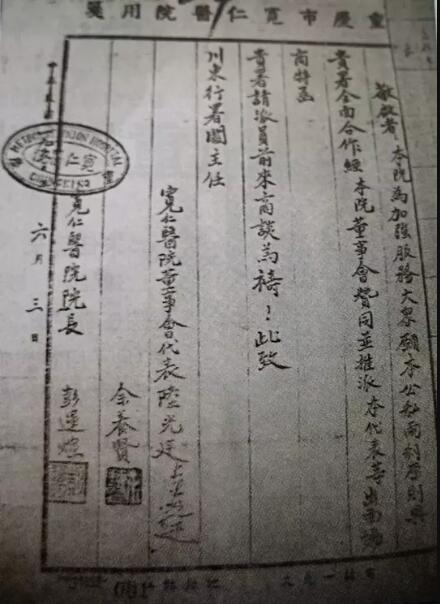 重慶市寬仁醫院用箋
敬啟者 本院為加強服務大衆願本公私兩利原則與
貴署全面合作經本院董事會贊同並推派本代表等出面協
商特函
貴署請派員前來商談為禱！此致
川東行署閻主任
寬仁醫院董事會代表 陸光廷
余養賢
寬仁醫院院長 彭
六月三日
METHODIST UNION HOSPITAL
寬仁醫院
CHUNGKING